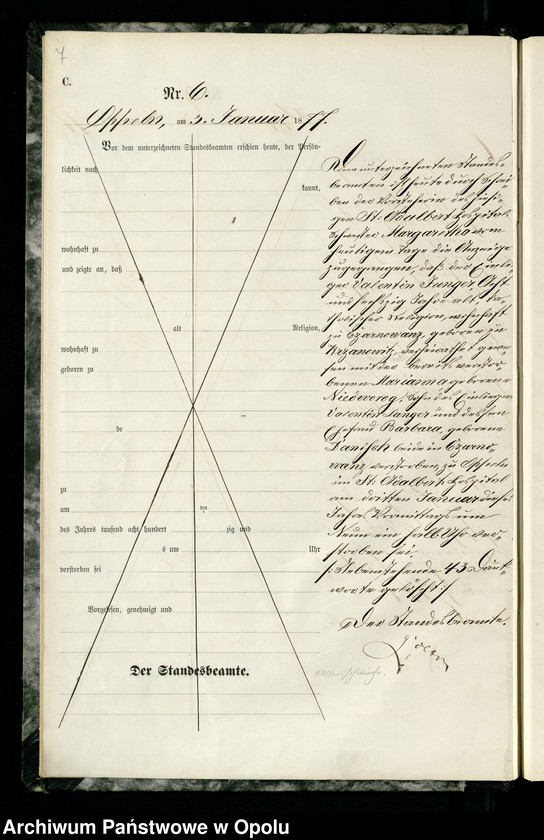 7
C.
Nr. 6.
Oppeln, am 3. Januar 1877.
Vor dem unterzeichneten Standesbeamten erschien heute, der Persön-
lichkeit nach
kannt,
wohnhaft zu
und zeigte an, daß
alt Religion,
wohnhaft zu
geboren zu
de
zu
am ten
des Jahres tausend acht hundert zig und
s um Uhr
verstorben sei
Vorgelesen, genehmigt und
Der Standesbeamte.
Dem unterzeichneten Standes-
beamten ist heute durch Schrei-
ben der Vorsteherin des hiesi-
gen St. Adalbert Hospitals
Schwester Margaretha vom
heutigen Tage die Anzeige
zugegangen, daß der Einlie-
ger Valentin Janger, Acht
und sechzig Jahre alt, ka-
tholischer Religion, wohnhaft
zu Czarnowanz, geboren zu
Krzanowitz, verheirathet gewe-
sen mit der bereits verstor-
benen Marianna geborene
Sohn des Einlieger
Valentin Janger und dessen
Ehefrau Barbara, geborene
Janisch beide in Czarno-
wanz verstorben, zu Oppeln
im St. Adalbert Hospital
am dritten Januar dieses
Jahres Vormittags um
Neun ein halb Uhr ver-
storben sei.
/: Nebenstehende 43 Druck-
worte gelöscht :/
Der Standesbeamte.
Archiwum Państwowe w Opolu